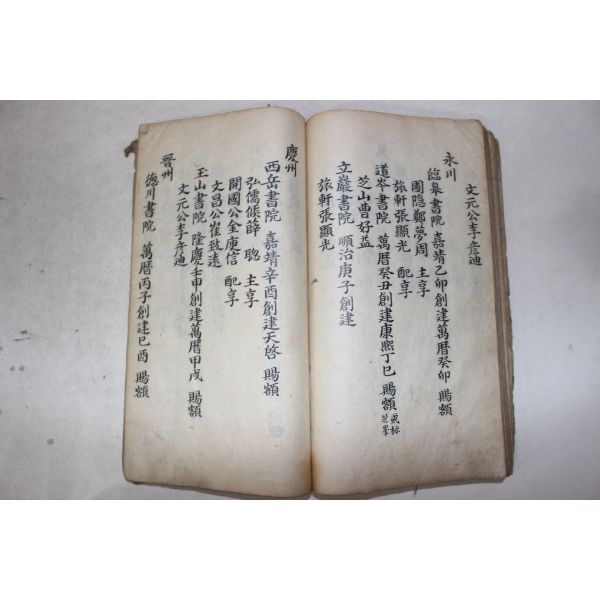 文元公李彦迪
永川
臨皐書院 嘉靖乙卯創建萬曆癸卯 賜額
圃隱鄭夢周 主享
旅軒張顯光 配享
道岑書院 萬曆癸丑創建康熙丁巳 賜額 或称芝峯
芝山曺好益
立巖書院 順治庚子創建
旅軒張顯光
慶州
西岳書院 嘉靖辛酉創建天啓 賜額
弘儒候薛 聦 主享
開國公金庾信 配享
文昌公崔致遠
玉山書院 隆慶壬申創建萬曆甲戌 賜額
文元公李彦迪
晉州
德川書院 萬曆丙子創建巳酉 賜額